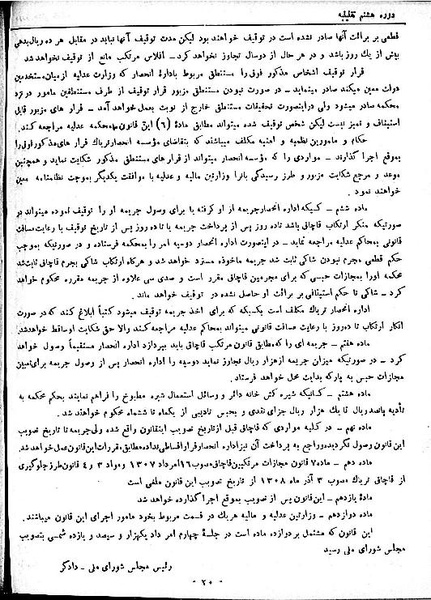 دوره هشتم تقنینیه
قطعی بر برائت آنها صادر نشده است در توقیف خواهند بود لیکن مدت توقیف آنها نباید در مقابل هر ده ریال بدهی
بیش از یك روز باشد و در هر حال از دو سال تجاوز نخواهد کرد - افلاس مرتکب مانع از توقیف نخواهد شد
قرار توقیف اشخاص مذکور فوق را مستنطق مربوط بادارۀ انحصار که وزارت عدلیه از میان مستخدمین
دولت معین میکند صادر مینماید - در صورت نبودن مستنطق مزبور قرار توقیف از طرف مستنطقین مامور در نزد
محکمه صادر میشود ولی در اینصورت تحقیقات مستنطق خارج از نوبت بعمل خواهد آمد - قرار های مزبور قابل
استیناف و تمیز نیست لیکن شخص توقیف شده میتواند مطابق مادۀ (۶) این قانون بمحکمه عدلیه مراجعه کند.
حکام و مامورین نظمیه و امنیه مکلف میباشند که بتقاضای مؤسسه انحصار تریاك قرار های مذکور فوق را
بموقع اجرا گذارند - مواردی را که مؤسسه انحصار میتواند از قرار های مستنطق مذکور شکایت نماید و همچنین
موعد و مرجع شکایت مزبور و طرز رسیدگی بآنرا وزارتین مالیه و عدلیه با موافقت یکدیگر بموجب نظامنامه معین
خواهند نمود .
ماده ششم - کسیکه اداره انحصار جریمه از او گرفته یا برای وصول جریمه او را توقیف نموده میتواند در
صورتیکه منکر ارتکاب قاچاق باشد تا ده روز پس از پرداخت جریمه یا تا ده روز پس از تاریخ توقیف با رعایت مسافت
قانونی بمحاکم عدلیه مراجعه نماید - در اینصورت اداره انحصار دوسیه امر را بمحکمه فرستاده و در صورتیکه بموجب
حکم قطعی مجرم نبودن شاکی ثابت شد جریمه ماخوذه مسترد خواهد شد و هرگاه ارتکاب شاکی بجرم قاچاق ثابت شد
محکمه اورا بمجازات حبسی که برای مجرمین قاچاق مقرر است و صدی سی علاوه از جریمه مقرره محکوم خواهد
کرد - شاکی تا حکم استینافی بر برائت او حاصل نشده در توقیف خواهد ماند .
اداره انحصار تریاك مکلف است بکسیکه که برای اخذ جریمه توقیف میشود کتباً ابلاغ کند که در صورت
انکار ارتکاب تا ده روز با رعایت مسافت قانونی میتواند بمحاکم عدلیه مراجعه کند والا حق شکایت او ساقط خواهد شد.
ماده هفتم - جریمه ای را که مطابق قانون مرتکب قاچاق باید بپردازد اداره انحصار مستقیماً وصول خواهد
کرد - در صورتیکه میزان جریمه از هزار ریال تجاوز نماید دوسیه را اداره انحصار پس از وصول جریمه برای تعیین
مجازات حبس به پارکه بدایت محل خواهد فرستاد .
ماده هشتم - کسانیکه شیره کش خانه دائر و وسائل استعمال شیره مطبوخ را فراهم نمایند بحکم محکمه به
تأدیه پانصد ریال تا یك هزار ریال جزای نقدی و بحبس تادیبی از یکماه تا شش ماه محکوم خواهند شد .
ماده نهم - در کلیه مواردی که قاچاق قبل از تاریخ تصویب این قانون واقع شده ولی جریمه تا تاریخ تصویب
این قانون وصول نگردیده و راجع به پرداخت آن نیز اداره انحصار قرار اقساطی نداده مطابق مقررات این قانون عمل خواهد شد.
ماده دهم - ماده ۷ قانون مجازات مرتکبین قاچاق مصوب ۱۶ امرداد ۱۳۰۷ و مواد ۳ و ۴ قانون طرز جلوگیری
از قاچاق تریاك مصوب ۳ آذر ماه ۱۳۰۸ از تاریخ تصویب این قانون ملغی است
ماده یازدهم - این قانون پس از تصویب بموقع اجرا گذارده خواهد شد
ماده دوازدهم - وزارتین عدلیه و مالیه هر یك در قسمت مربوط بخود مامور اجرای این قانون میباشند.
این قانون که مشتمل بر دوازده ماده است در جلسۀ چهارم امر داد یکهزار و سیصد و یازده شمسی بتصویب
مجلس شورای ملی رسید
رئیس مجلس شورای ملی - دادگر
- ۲۰ -